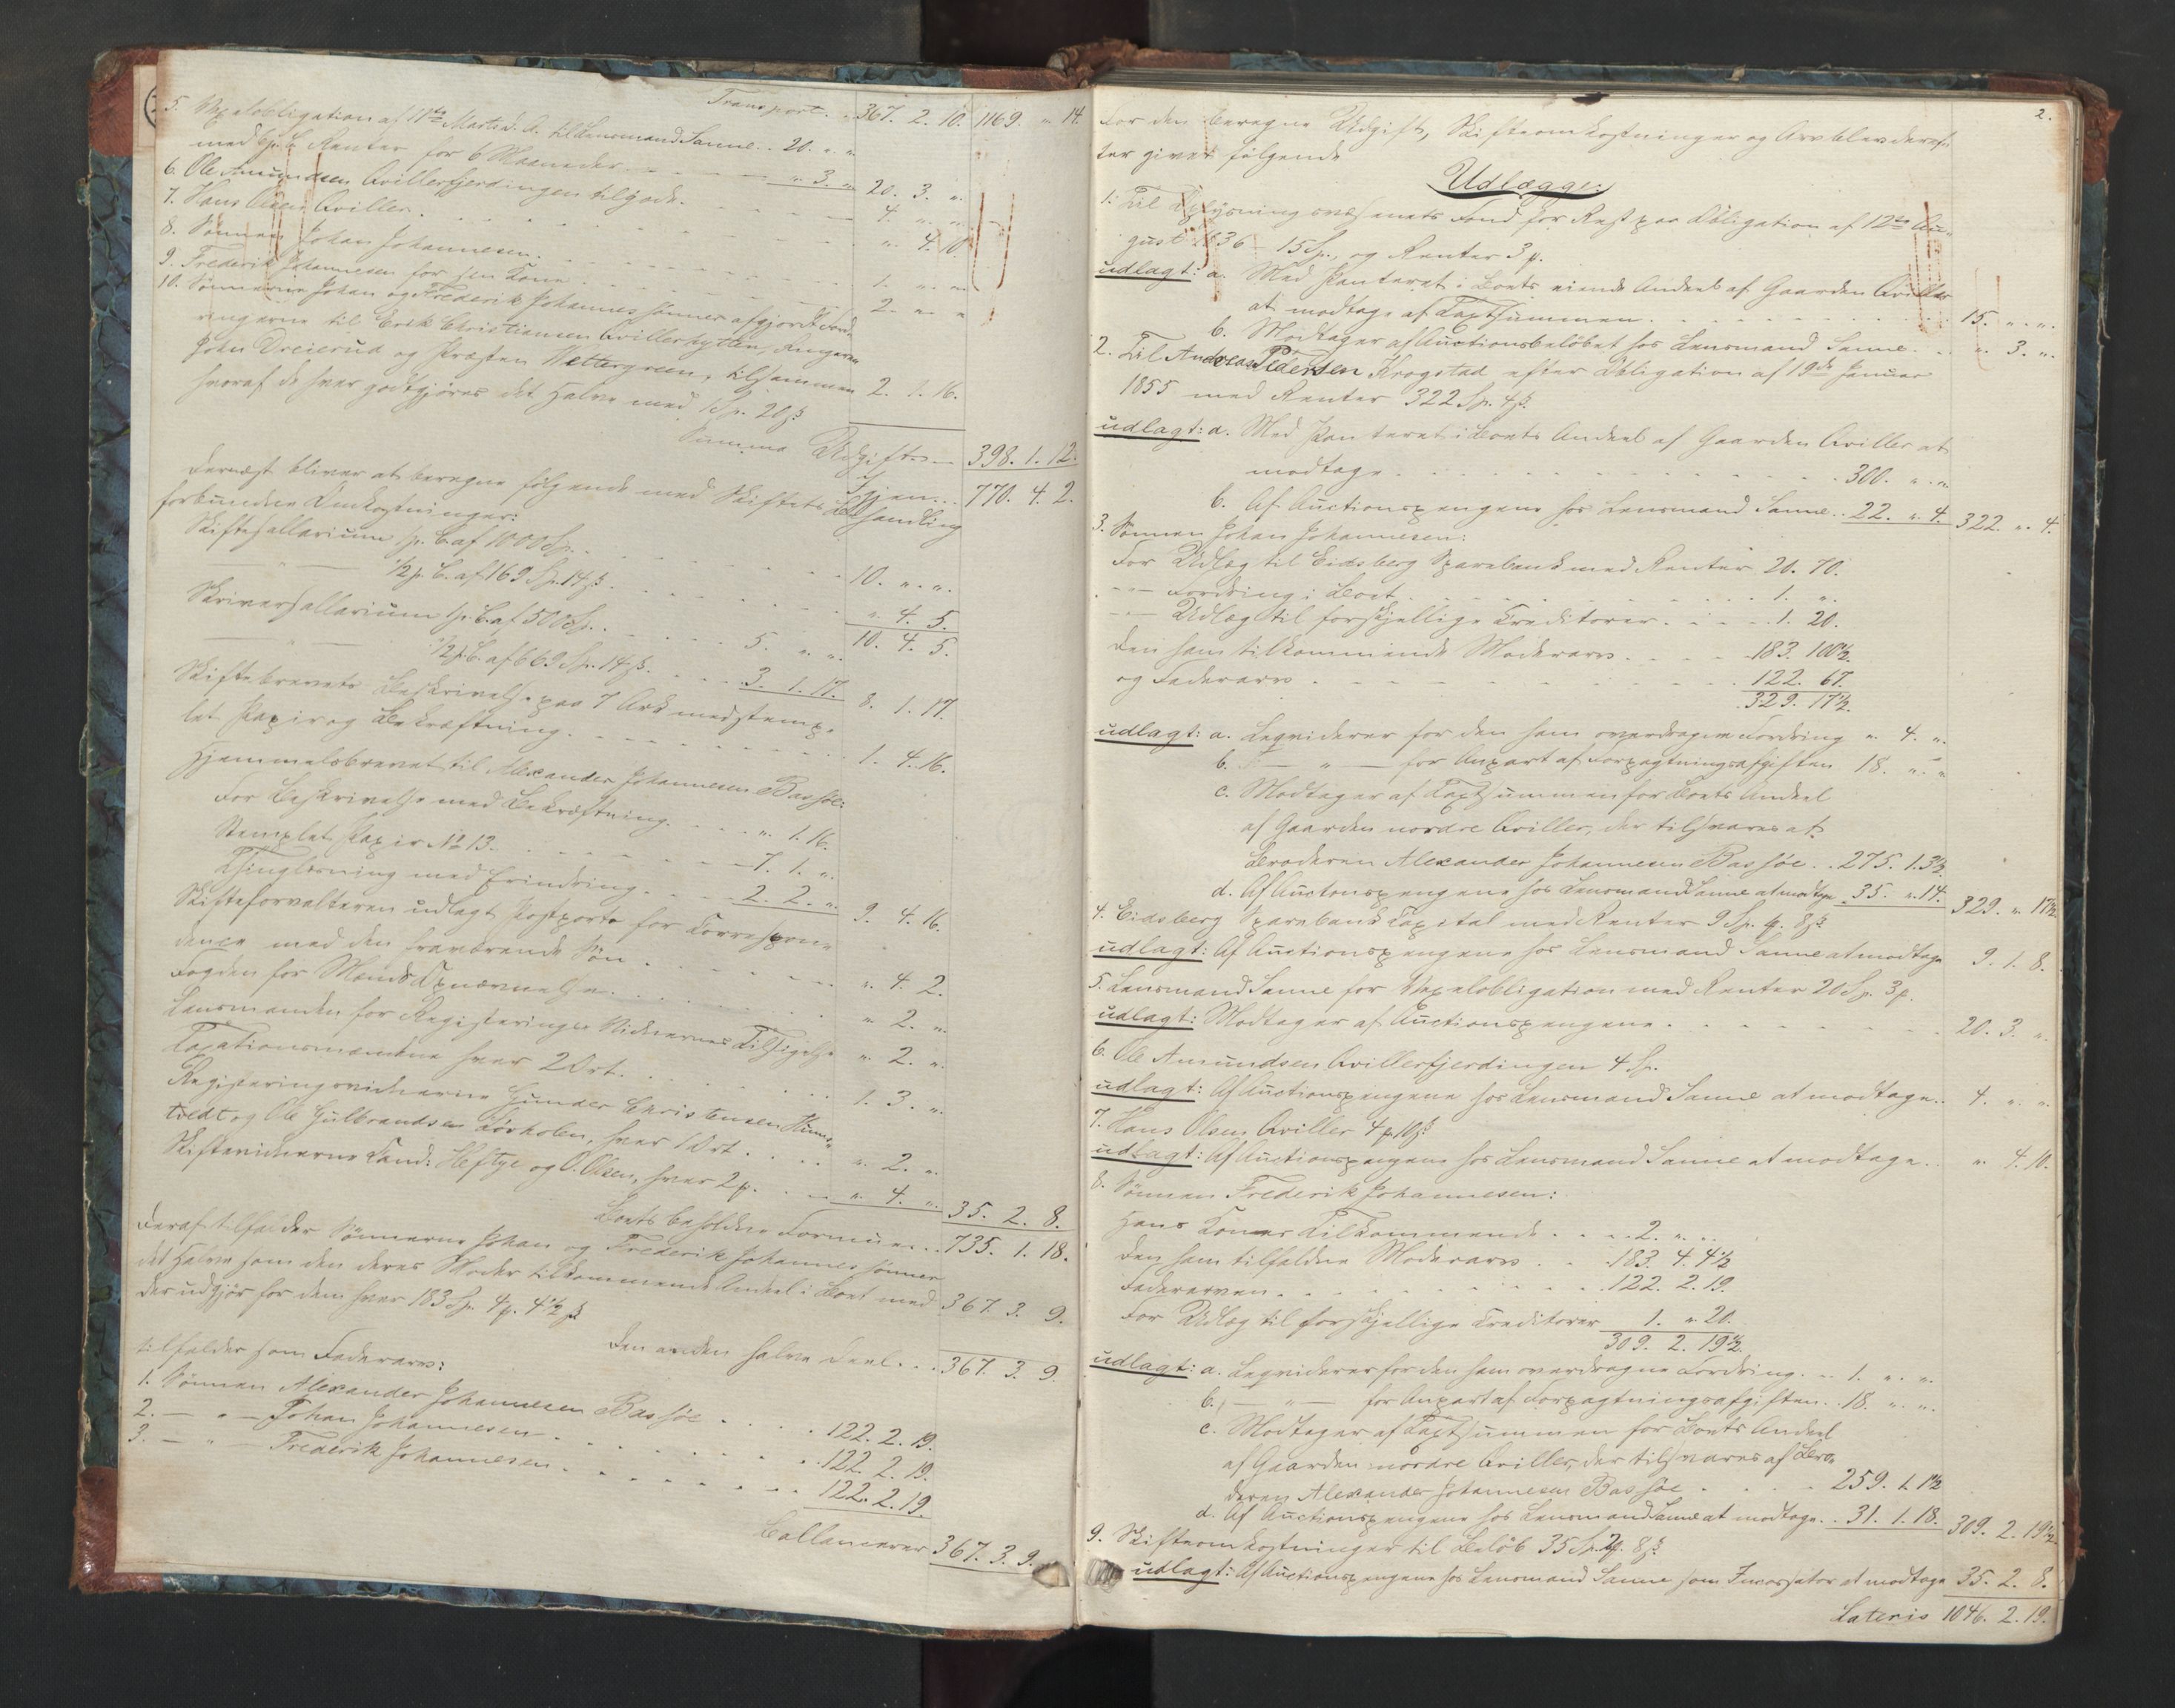 Transport. „ 367. 2. 10. 1169. „ 14.
5. Vexelobligation af 11te Marts d. A. til Lensmand Sanne.. 20. „ „
med 6 p. C. Renter for 6 Maaneder „ 3. „ 20. 3. „
6. Ole Amundsen Qvillerfjerdingen tilgode. 4. „ „
7. Hans Olsen Qviller. „ 4. 10.
8. Sønnen Johan Johannesen. 1. „ „
9. Frederik Johannesen for sin Kone 2. „ „
10. Sønnerne Johan og Frederik Johannes Sønner afgjordt Ford-
ringerne til Erik Christiansen Qvillerhytten,
John Dreierud og Præsten Wettergreen, tilsammen 2. 1. 16.
hvoraf de hver godtgjøres det Halve med 1 Sp. 20 ß
Summa Udgift 398. 1. 12.
Igjen... 770. 4. 2.
Dernæst bliver at beregne følgende med Skiftets Behandling
forbundne Omkostninger:
Skiftesallarium 1 p. C. af 1000 Sp. 10. „ „
— „ — 1/2 p. C. af 169 Sp. 14 ß „ 4. 5.
10. 4. 5.
Skriversallarium 1 p. C. af 500 Sp. 5. „ „
— „ — 1/2 p. C. af 669 Sp. 14 ß. 3. 1. 17. 8. 1. 17.
Skiftebrevets Beskrivelse paa 7 Ark med stemp-
let Papir og Bekræftning. 1. 4. 16.
Hjemmelsbrevet til Alexander Johannesen Bassøe:
For Beskrivelse med Bekræftning. „ 1. 16.
Stemplet Papir No 13. 7. 1. „
Thinglæsning med Erindring. 2. 2. „ 9. 4. 16.
Skifteforvalteren udlagt Postporto for Correspon-
dence med den fraværende Søn „ 4. 2.
Fogden for Mænds Opnævnelse. „ 2. „
Lensmanden for Registrerings Vidnernes Tilsigelse „ 2. „
Taxationsmændene hver 2 Ort. 1. 3. „
Registreringsvidnerne Gunder Christensen Huus-
tvedt og Ole Gulbrandsen Løvholen, hver 1 Ort. „ 2. „
Skiftevidnerne Cand: Heftye og O. Olsen, hver 2 p. „ 4. „ 35. 2. 8.
Boets beholdne Formue 735. 1. 18.
Deraf tilfalder Sønnerne Johan og Frederik Johannes Sønner
det Halve som den deres Moder tilkommende Andeel i Boet med 367. 3. 9.
der udgjør for dem hver 183 Sp. 4 p. 4 1/2 ß
Den anden halve Deel 367. 3. 9.
tilfalder som Faderarv:
1. Sønnen Alexander Johannesen Bassøe 122. 2. 19.
2. — „ — Johan Johannesen 122. 2. 19.
3. — „ — Frederik Johannesen 122. 2. 19.
Ballancerer 367. 3. 9.
2.
For den beregne Udgift, Skifteomkostninger og Arv blev deref-
ter givet følgende
Udlægge:
1. Til Oplysningsvæsenets Fond for Rest paa Obligation af 12te Au-
gust 1836 – 15 Sp., og Renter 3 p.
udlagt: a. Med Panteret i Boets eiende Andeel af Gaarden Qviller
at modtage af Taxtsummen. 15. „ „
b. Modtager af Auctionsbeløbet hos Lensmand Sanne „ 3. „
2. Til Andreas Pedersen Krogstad efter Obligation af 19de Januar
1855 med Renter 322 Sp. 4 ß.
udlagt: a. Med Panteret i Boets Andeel af Gaarden Qviller at
modtage 300. „ „
b. Af Auctionspengene hos Lensmand Sanne.. 22. „ 4. 322. „ 4.
3. Sønnen Johan Johannesen:
For Udlæg til Eidsberg Sparebank med Renter 20. 70.
— Fordring i Boet 1. „
— Udlæg til forskjellige Creditorer. 1. 20.
Den ham tilkommende Moderarv. 183. 100 1/2.
og Faderarv 122. 67.
329. 17 1/2.
udlagt: a. Liqviderer for den ham overdragne Fordring „ 4. „
b. — „ — for Anpart af Forpagtningsafgiften 18. „ „
c. Modtager af Taxtsummen for Boets Andeel
af Gaarden nordre Qviller, der tilsvares af
Broderen Alexander Johannesen Bassøe.. 275. 1. 3 1/2
d. Af Auctionspengene hos Lensmand Sanne at modtage 35. „ 14. 329. „ 17 1/2
4. Eidsberg Sparebank Capital med Renter 9 Sp. 1 p. 8 ß
udlagt: Af Auctionspengene hos Lensmand Sanne at modtage 9. 1. 8.
5. Lensmand Sanne for Vexelobligation med Renter 20 Sp. 3 p.
udlagt: Modtager af Auctionspengene 20. 3. „
6. Ole Amundsen Qvillerfjerdingen 4 Sp.
udlagt: Af Auctionspengene hos Lensmand Sanne at modtage.. 4. „ „
7. Hans Olsen Qviller 4 p. 10 ß
udlagt: Af Auctionspengene hos Lensmand Sanne at modtage.. „ 4. 10.
8. Sønnen Frederik Johannesen:
Hans Kones Tilkommende 2. „ „
Den ham tilfaldne Moderarv 183. 4. 4 1/2
Faderarven 122. 2. 19.
For Udlæg til forskjellige Creditorer 1. „ 20.
309. 2. 19 1/2.
udlagt: a. Liqviderer for den ham overdragne Fordring. 1. „ „
b. — „ — for Anpart af Forpagtningsafgiften.. 18. „ „
c. Modtager af Taxtsummen for Boets Andeel
af Gaarden nordre Qviller, der tilsvares af Bro-
deren Alexander Johannesen Bassøe 259. 1. 1 1/2
d. Af Auctionspengene hos Lensmand Sanne at modtage. 31. 1. 18. 309. 2. 19 1/2
9. Skifteomkostninger til Beløb 35 Sp. 2 p. 8 ß.
udlagt: Af Auctionspengene hos Lensmand Sanne som Incassator at modtage 35. 2. 8.
Lateris 1046. 2. 19.